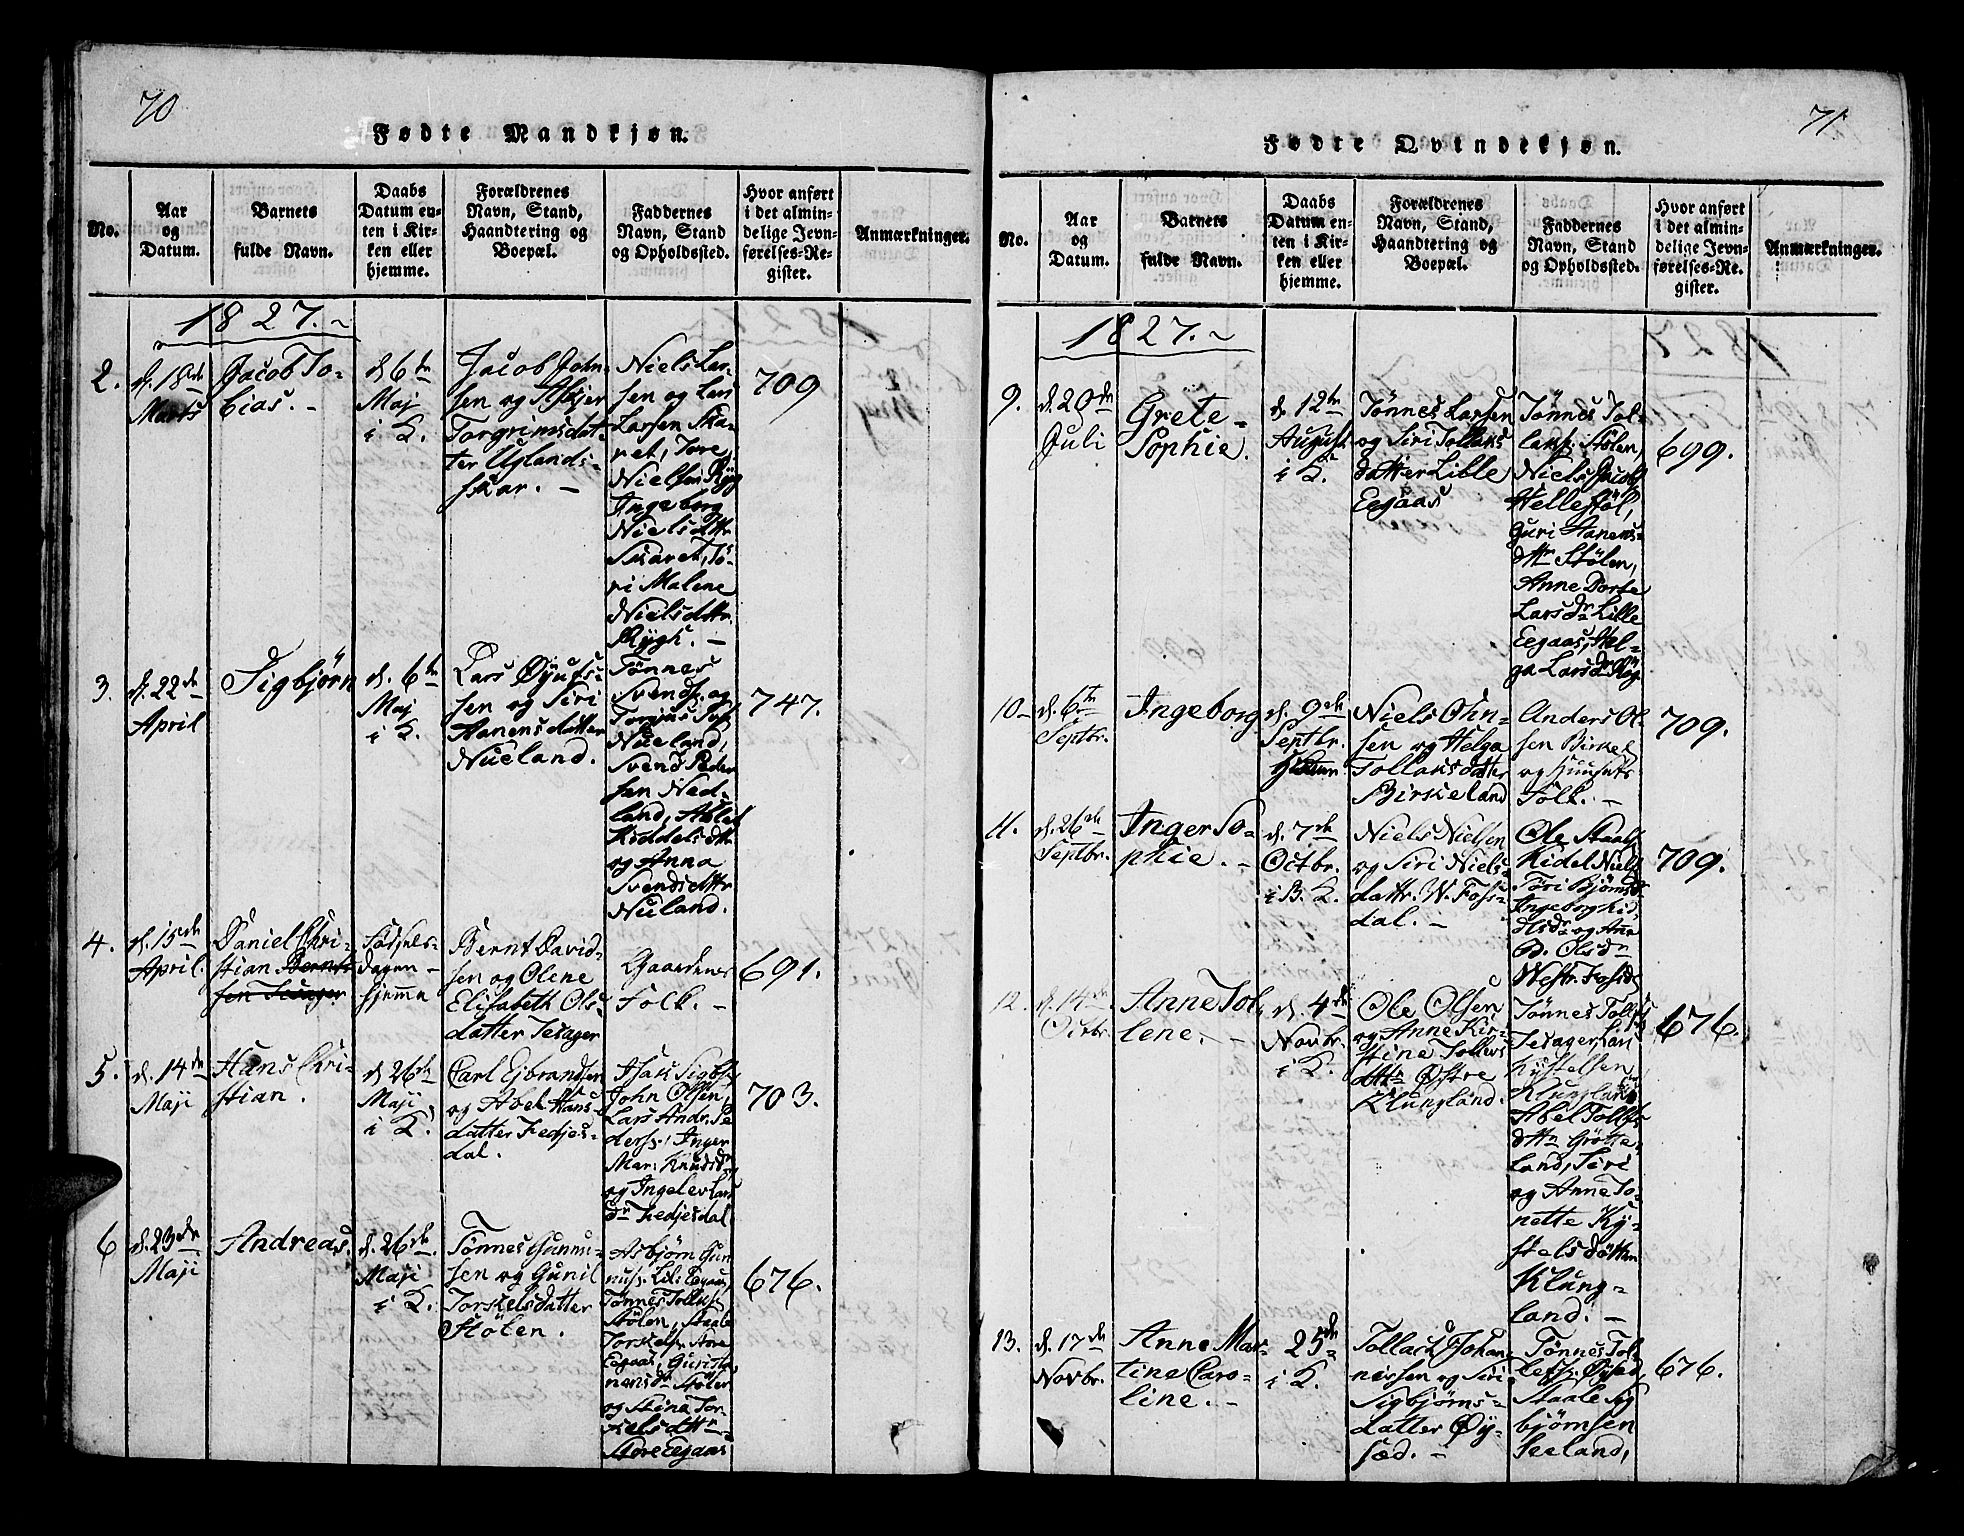 70
Fødte Mandkjøn.
No.
Aar
og
Datum.
Barnets
fulde Navn.
Daabs
Datum en-
ten i Kir-
ken eller
hjemme.
Forældrenes
Navn, Stand,
Haandtering og
Boepæl.
Faddernes
Navn, Stand
og Opholdssted.
Hvor anført
i det almin-
delige Jevn-
førelses-Re-
gister.
Anmærkninger.
1827.
2.
d. 18de
Marts
Jacob To-
bias.
d 6te
Maj
i K.
Jacob John-
sen og Asbjer
Torgrimsdat-
ter Uglands-
skar.
Niels Lar-
sen og Lars
Larsen Ska-
ret, Tore
Nielsen Ryg
Ingeborg
Nielsdttr
Skaret, Tö-
ri Malene
Nielsdttr
Rygh.
709
3.
d. 22de
April
Sigbjørn
d. 6te
Maj
i K.
Lars Øyufs-
sen og Siri
Aanensdatter
Nueland.
Tønnes
Svends. og
Nueland,
Svend Peder
sen Ned-
land, Abel
Kiddelsdtr
og Anna
Svendsdttr
Nuland.
747.
4.
d. 15de
April.
Daniel Chri-
stian Bernt-
sen Tesager
Fødsels-
dagen
hjemme
Bernt David-
sen og Olene
Elisabeth Ols-
datter Tesager
Gaardenes
Folk.
691.
5.
d. 14de
Maji
Hans Chri-
stian.
d 26te
Maji
i K.
Carl Ejbrandsen
og Abel Hans-
datter Fedjes-
dal.
Isak Sigbj.
John Olsen,
Lars Andr. Pe
ders., Inger
Mar. Knudsdr
og Ingeler Lars
dr Fedjesdal.
703.
6
d. 23de
Maji
Andreas.
d. 26de
Maji
i K.
Tønnes Gunnu-
sen og Gunil
Torkelsdatter
Stölen.
Asbjørn Gun
nus. Lil. Eegaas,
Tønnes Tolleks
Stölen, Staale
Torkels. Store
Eegaas, Guri Aa-
nensdr Stölen
og Stina Tor-
kelsdttr
Store Eegaas
676.
71
Fødte Qvindekjøn.
No.
Aar
og
Datum.
Barnets
fulde Navn.
Daabs
Datum en-
ten i Kir-
ken eller
hjemme.
Forældrenes
Navn, Stand,
Haandtering og
Boepæl.
Faddernes
Navn, Stand
og Opholdssted.
Hvor anført
i det almin-
delige Jevn-
førelses-Re-
gister.
Anmærkninger.
1827.
9.
d. 20de
Juli
Grete
Sophie.
d. 12te
August
i K.
Tönnes Larsen
og Siri Tollaks
datter Lille
Eegaas
Jönnes Tol-
laks. Stölen,
Niels Jacobs
Hellestöl,
Guri Aanens-
dttr Stölen,
Anne Dorte
Larsdr Lille
Eegaas, Hel-
ga Larsdr Röj
699.
10
d. 6te
Septbr.
Ingeborg
d. 9de
Septbr.
Niels Ohn-
sen og Helga
Tollaksdatter
Birkeland
Anders Ol-
sen Birkel
og Huusets
Folk.
709.
11.
d. 26de
Septbr.
Inger So-
phie.
d. 7de
Octbr.
i B. K.
Niels Nielsen
og Siri Niels-
dattr. W. Foss-
dal.
Ole Staals
Kidel Niels
Töri Bjørnsdr
Ingeborg Kid
dlsdr og Ane
B. Olsdr
Westr. Fossd.
709.
12.
d. 14de
Octbr.
Anne Tol-
lene.
d. 4de
Novbr.
i K.
Ole Olsen
og Anne Kir-
stine Tollevs
dttr Østre
Klungland.
Tønnes Tolljs
Tesager, Lars
Kystelsen
Klungland
Abel Tollefs
dttr Grötte-
land, Siri
og Anne To-
nette Ky-
stelsdöttre
Klung-
land.
676.
13.
d. 17de
Novbr.
Anne Mar-
tine Caro-
line.
25de
i K.
Tollach Johan-
nessen og Siri
Sigbjørns-
datter Øy-
sæd.
Tønnes Tol-
lefs. Øysæd,
Staale Sig
bjørnsen
Seeland,
676.